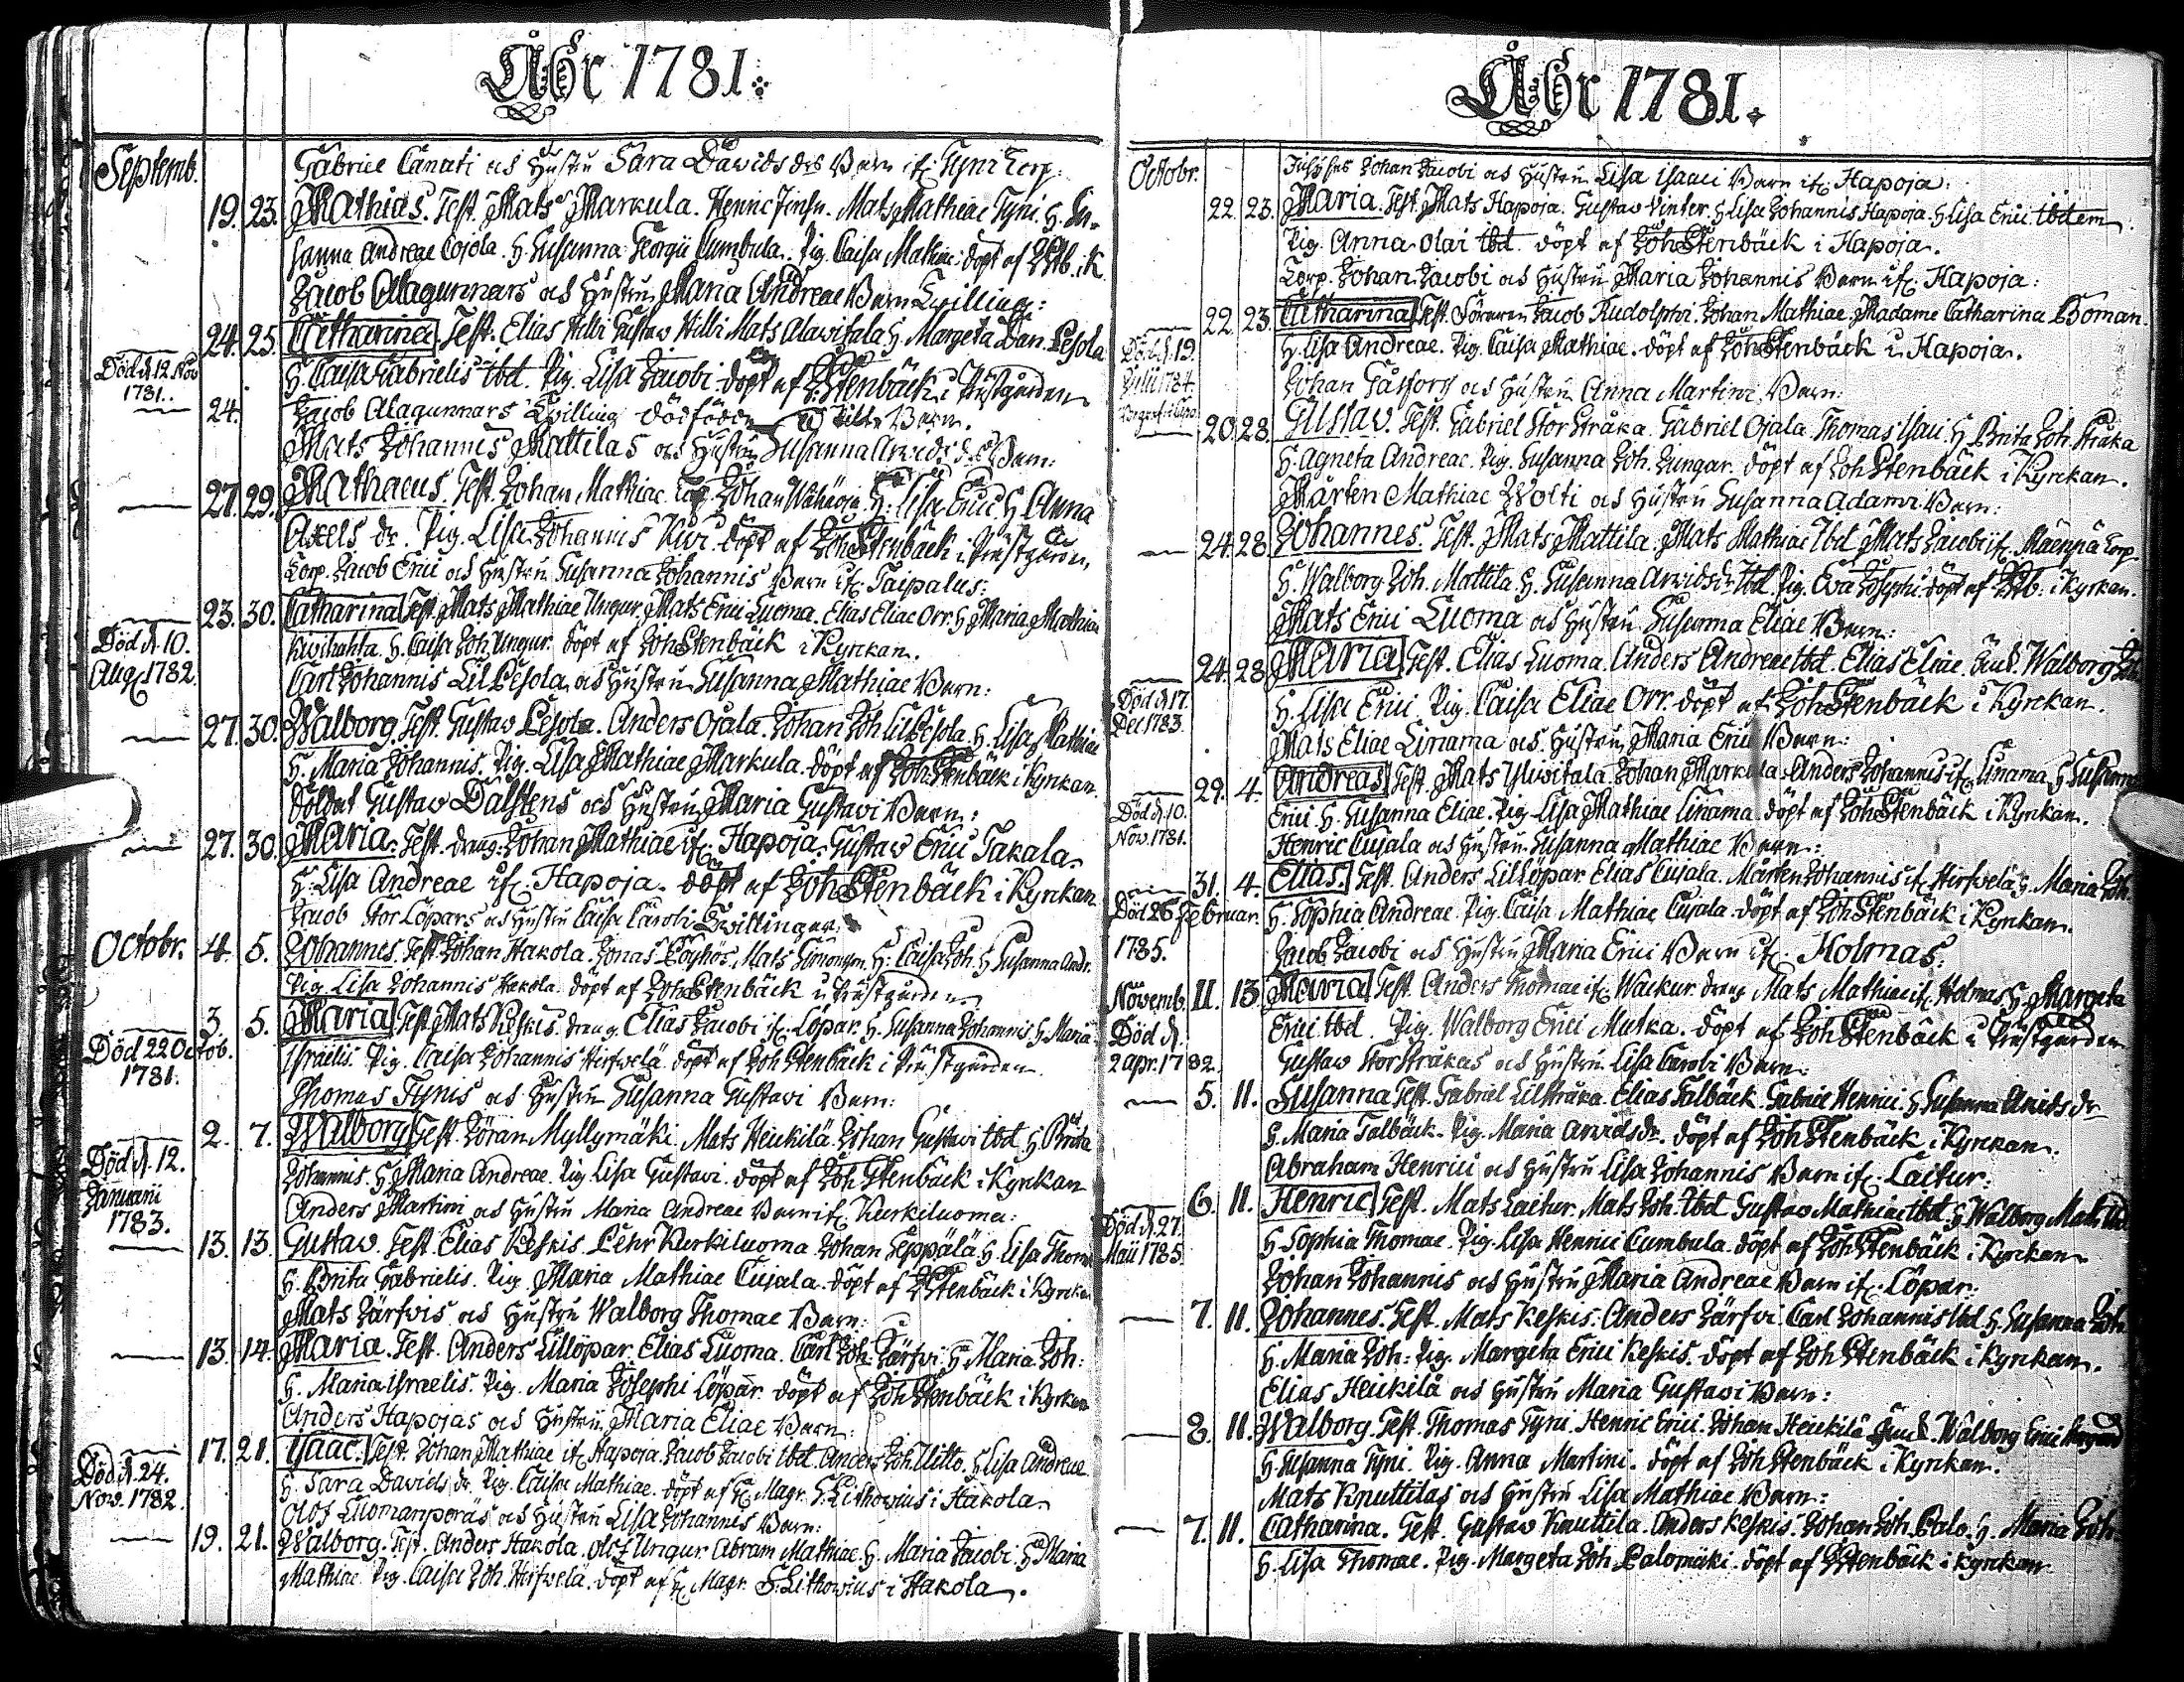 Åhr 1781.
Septemb.
Gabriel Canati och Hustru Sara Davids drs Barn if: Tyni Torp:
19. 23. Mathias. Test. Mats Markula. Henric Mats Mathiae Tyni. H. Su-
sanna Andreae Cojola. H. Susanna Georgii Cumbula. Pig. Caisa Mathiae: döpt af i K.
Jacob Alagunnars och Hustru Maria Andreae Barn Tvilling:
24. 25. Catharina Test. Elias Hilli Gustav Hilli Mats Alavitala H. Margeta Dan. Pesola
Död d. 12. Nov
1781.
H. Caisa Gabrielis ibd. Pig. Lisa Jacobi döpt af J. Stenbäck i Prästgården
24. Jacob Alagunnars Tvilling dödfödde Barn.
Mats Johannis Mattilas och Hustru Susanna Arvids drs Barn:
27. 29. Mathaeus. Test. Johan Mathiae Johan H. Lisa Erici H Anna
Axels dr. Pig. Lisa Johannis döpt af Joh Stenbäck i Prästgården
Torp. Jacob Erici och Hustru Susanna Johannis Barn if: Taipalus:
23. 30. Catharina Test. Mats Mathiae Ungur. Mats Erici Luoma. Elias Eliae Orr. H Maria Mathiae
Död d. 10.
Aug. 1782.
H. Caisa Joh. Ungur. döpt af Joh Stenbäck i Kyrckan.
Carl Johannis Lill Pesola och Hustru Susanna Mathiae Barn:
27. 30. Walborg. Test. Gustav Pesola. Anders Ojala. Johan Joh Lill Pesola. H. Lisa Mathiae
H. Maria Johannis. Pig. Lisa Mathiae Markula. döpt af Joh. Stenbäck i Kyrckan.
Soldat Gustav Dalstens och Hustru Maria Gustavi Barn:
27. 30. Maria. Test. dreng. Johan Mathiae if: Hapoja. Gustav Erici Takala.
H. Lisa Andreae if: Hapoja. döpt af Joh Stenbäck i Kyrckan
Jacob Stor Löpars och Hustru Caisa Caroli Tvillingar
Octobr. 4. 5. Johannes. Test. Johan Hakola. Jonas Mats H. Caisa Joh. H Susanna Andr.
Pig. Lisa Johannis Hakola. döpt af Joh Stenbäck i Prästgården
3. 5. Maria Test. Mats Keskis. dreng. Elias Jacobi if: Löpar. H. Susanna Johannis H. Maria
Död 22 Octob.
1781.
Israelis. Pig. Caisa Johannis Hirfvelä döpt af Joh Stenbäck i Prästgården.
Thomas Tynis och Hustru Susanna Gustavi Barn:
2. 7. Walborg Test. Jöran Myllymäki. Mats Heickilä. Johan Gustavi ibd. H. Brita
Död d. 12.
Januarii
1783.
Johannis. H Maria Andreae. Pig. Lisa Gustavi. döpt af Joh Stenbäck i Kyrckan
Anders Martini och Hustru Maria Andreae Barn if: Kurkiluoma:
13. 13. Gustav. Test. Elias Keskis. Pehr Kurkiluoma. Johan Seppälä. H. Lisa Thom
H. Brita Gabrielis. Pig. Maria Mathiae Cujala. döpt af J Stenbäck i Kyrcka
Mats Järfvis och Hustru Walborg Thomae Barn:
13. 14. Maria. Test. Anders Lillöpar. Elias Luoma. Carl Joh. Järfvi. H Maria Joh:
H. Maria Israelis. Pig. Maria Josephi Löpar. döpt af Joh Stenbäck i Kyrckan
Anders Hapojas och Hustru Maria Eliae Barn:
17. 21. Isaac. Test. Johan Mathiae if. Hapoja. Jacob Jacobi ibd. Anders Joh. Ulitto. H Lisa Andreae
Död d. 24.
Nov. 1782.
H. Sara Davids dr. Pig. Caisa Mathiae. döpt af H. Magr. S. Lithovius i Hakola.
Olof Luomanperäs och Hustru Lisa Johannis Barn:
19. 21. Walborg. Test. Anders Hakola. Olof Ungur. Abram Mathiae. H. Maria Jacobi. H Maria
Mathiae. Pig. Caisa Joh. Hirfvela. döpt af H: Magr. S. Lithovius i Hakola.
Åhr 1781.
Octobr.
Johan Jacobi och Hustru Lisa Isaaci Barn if: Hapoja:
22. 23. Maria. Test. Mats Hapoja. Gustav Vinter. H Lisa Johannis Hapoja. H Lisa Erici ibdem
Pig. Anna Olai ibd. döpt af Joh Stenbäck i Hapoja.
Torp. Johan Jacobi och Hustru Maria Johannis Barn if: Hapoja:
22. 23. Catharina Test. Jacob Rudolphi. Johan Mathiae. Madame Catharina Boman.
Död d. 19.
Julii 1784.
H. Lisa Andreae. Pig. Caisa Mathiae. döpt af Joh Stenbäck i Hapoja.
Johan och Hustru Anna Martini Barn:
20. 28. Gustav. Test. Gabriel Stor Stråka. Gabriel Ojala. Thomas Isaci. H Brita Joh. Stråka
H. Agneta Andreae. Pig. Susanna Joh. Zungar. döpt af Joh Stenbäck i Kyrckan.
Mårten Mathiae Wolti och Hustru Susanna Adami Barn:
24. 28. Johannes. Test. Mats Mattila. Mats Mathiae Ibd Mats Jacobi if: Mäenpä Torp
H. Walborg Joh. Mattila. H. Susanna Arvids dr Ibd. Pig. Eva Josephi. döpt af i Kyrckan.
Mats Erici Luoma och Hustru Susanna Eliae Barn:
24. 28. Maria Test. Elias Luoma. Anders Andreae ibd. Elias Eliae. Walborg
Död d. 17.
Dec. 1783.
H. Lisa Erici. Pig. Caisa Eliae Orr. döpt af Joh Stenbäck i Kyrckan.
Mats Eliae Linama och Hustru Maria Erici Barn:
29. 4. Andreas Test. Mats Ylivitala. Johan Markula. Anders Johannis if: Linama. H Susanna
Död d. 10.
Nov. 1781.
Erici. H. Susanna Eliae. Pig. Lisa Mathiae Linama. döpt af Joh Stenbäck i Kyrckan.
Henric Cujala och Hustru Susanna Mathiae Barn:
31. 4. Elias. Test. Anders Lillöpar. Elias Cujala. Mårten Johannis if: Hirfvelä. H. Maria Joh.
Död 26 Februar.
1785.
H. Sophia Andreae. Pig. Caisa Mathiae Cujala. döpt af Joh Stenbäck i Kyrckan.
Jacob Jacobi och Hustru Maria Erici Barn if: Holmas:
Novemb. 11. 13. Maria Test. Anders Thomae if: Wackur. dreng. Mats Mathiae if: Holmas. H. Margeta
Död d.
2 apr. 1782.
Erici ibd. Pig. Walborg Erici Mutka. döpt af Joh Stenbäck i Prästgården
Gustav Storstråkas och Hustru Lisa Caroli Barn:
5. 11. Susanna Test. Gabriel Lilstråka. Elias Falbäck. Gabriel Henrici. H Susanna Arvids dr
H. Maria Falbäck. Pig. Maria Arvids dr. döpt af Joh Stenbäck i Kyrckan.
Abraham Henrici och Hustru Lisa Johannis Barn if: Caitur:
6. 11. Henric Test. Mats Caitur. Mats Joh. ibd. Gustav Mathiae ibd. H Walborg Math. ibd
Död d. 27.
Maii 1785.
H Sophia Thomae. Pig. Lisa Henrici Cumbula. döpt af Joh Stenbäck i Kyrckan
Johan Johannis och Hustru Maria Andreae Barn if: Löpar:
7. 11. Johannes. Test. Mats Keskis. Anders Järfvi. Carl Johannis ibd. H Susanna Joh
H. Maria Joh: Pig. Margeta Erici Keskis. döpt af Joh Stenbäck i Kyrckan.
Elias Heickilä och Hustru Maria Gustavi Barn:
8. 11. Walborg. Test. Thomas Tyni. Henric Erici. Johan Heickilä Walborg Erici
H. Susanna Tyni. Pig. Anna Martini. döpt af Joh Stenbäck i Kyrckan.
Mats Knuttilas och Hustru Lisa Mathiae Barn:
7. 11. Catharina. Test. Gustav Knuttila. Anders Keskis. Johan Joh. Palo. H. Maria Joh.
H. Lisa Thomae. Pig. Margeta Joh. Palomäki. döpt af J Stenbäck i Kyrckan